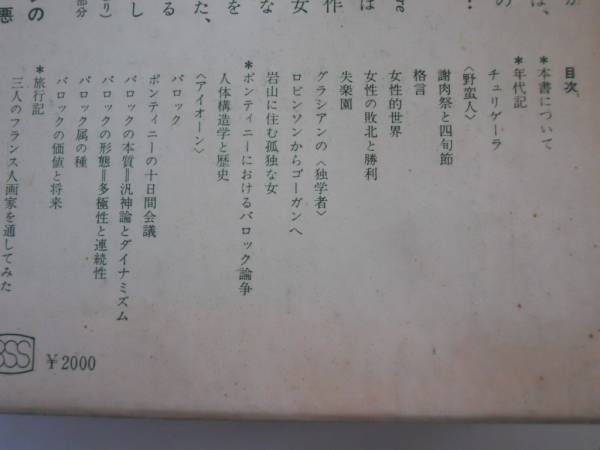 が
は、
の
…
re
は
作
女
な
を
た、
し
り）
部分
の
悪
目次
＊本書について
＊年代記
チュリゲーラ
〈野蛮人〉
謝肉祭と四旬節
格言
女性的世界
女性の敗北と勝利
失楽園
グラシアンの〈独学者〉
ロビンソンからゴーガンへ
岩山に住む孤独な女
＊ポンティニーにおけるバロック論争
人体構造学と歴史
〈アイオーン〉
バロック
ポンティニーの十日間会議
バロックの本質＝汎神論とダイナミズム
バロックの形態＝多極性と連続性
バロック属の種
バロックの価値と将来
＊旅行記
三人のフランス人画家を通してみた
BSS
¥2000